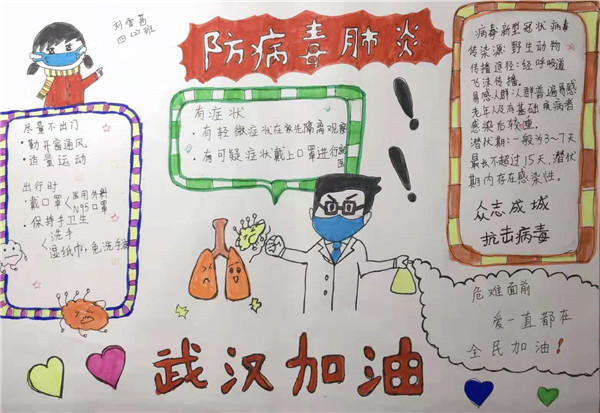 刘雪茜
四(2)班
防病毒肺炎
尽量不出门
·勤开窗通风
·适量运动
出行时
·戴口罩<医用外科
N95口罩
·保持手卫生
<洗手
湿纸巾,免洗手液
有症状
·有轻微症状在家先隔离观察
·有可疑症状戴上口罩进行就医
病毒:新型冠状病毒
传染源:野生动物
传播途径:经呼吸道
飞沫传播。
易感人群:人群普遍易感
老年人及有基础疾病者
感染后较重。
潜伏期:一般为3~7天
最长不超过15天,潜伏
期内存在感染性。
众志成城
抗击病毒
危难面前
爱一直都在
全民加油!
武汉加油